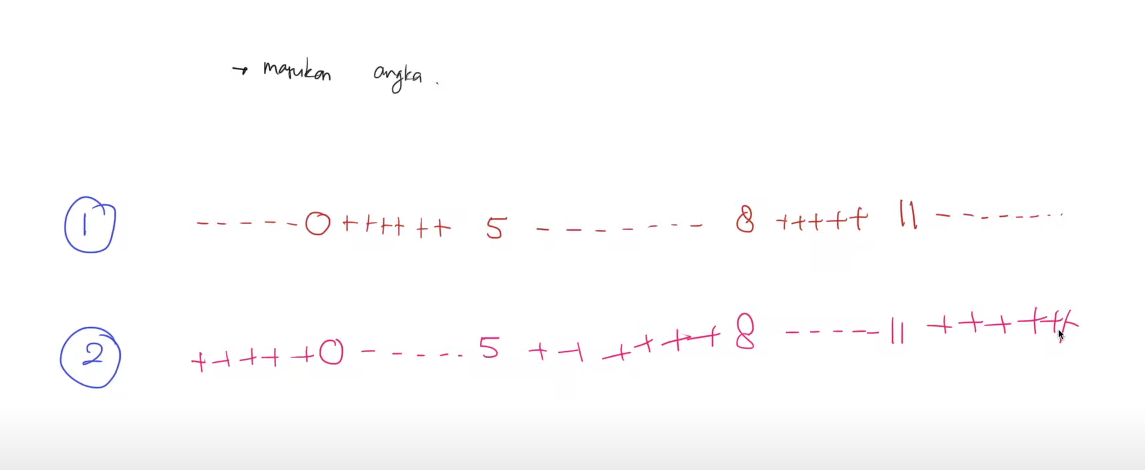 → masukan angka.
1 - - - - - 0 + + + + + + 5 - - - - - - - - 8 + + + + + 11 - - - - - - - . .
2 + + + + + 0 - - - - - . 5 + + + + + + 8 - - - - - 11 + + + + + +